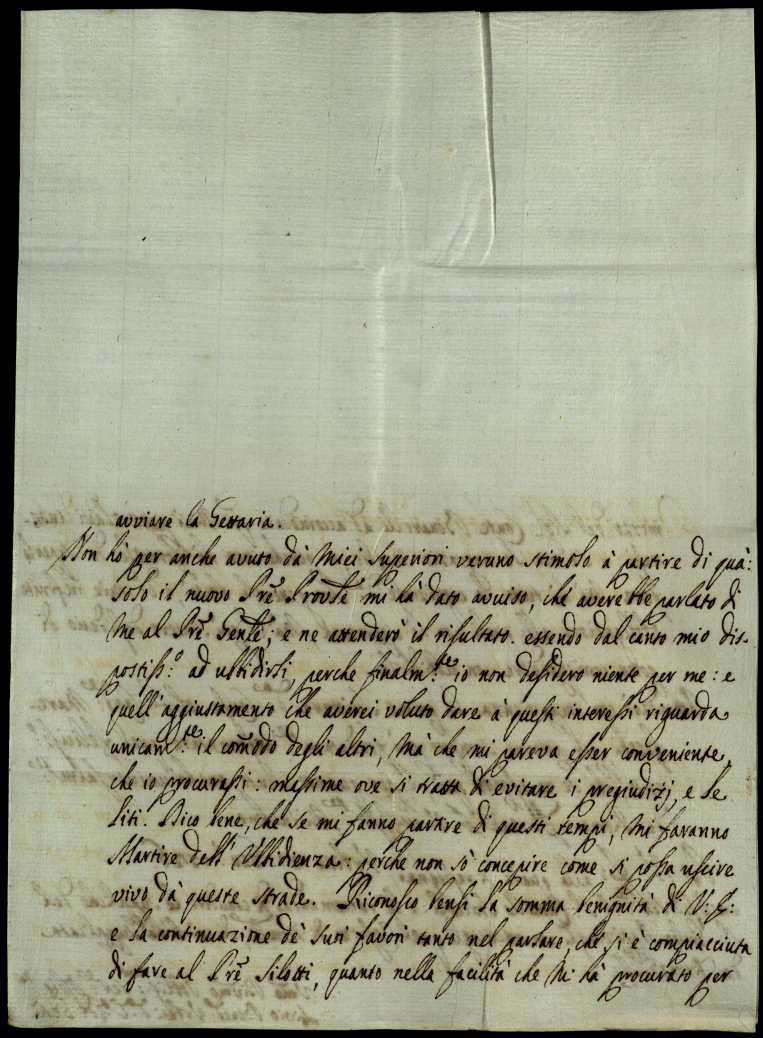 avviare la
Non hò per anche avuto dà Miei Superiori veruno stimolo à partire di quà:
solo il nuovo Prē Provle mi hà dato avviso, che averebbe parlato di
me al Prē Genle; e ne attenderò il risultato. essendo dal canto mio dis-
postiss:o ad ubbidirli, perche finalm:te io non desidero niente per me: e
quell'aggiustamento che averei voluto dare à questi interessi riguarda
unicam:te il comōdo degli altri, Mà che mi pareva esser conveniente,
che io procurassi: massime ove si tratta di evitare i pregiudizj, e le
liti. Dico bene, che se mi fanno partire di questi tempi, mi faranno
Martire dell'Ubbidienza: perche non sò concepire come si possa uscire
vivo dà queste strade. Riconosco bensì la somma benignità di V:E:
e la continuazione dè suoi favori tanto nel parlare, che si è compiacciuta
di fare al Prē Silotti, quanto nella facilità che Mi hà procurato per